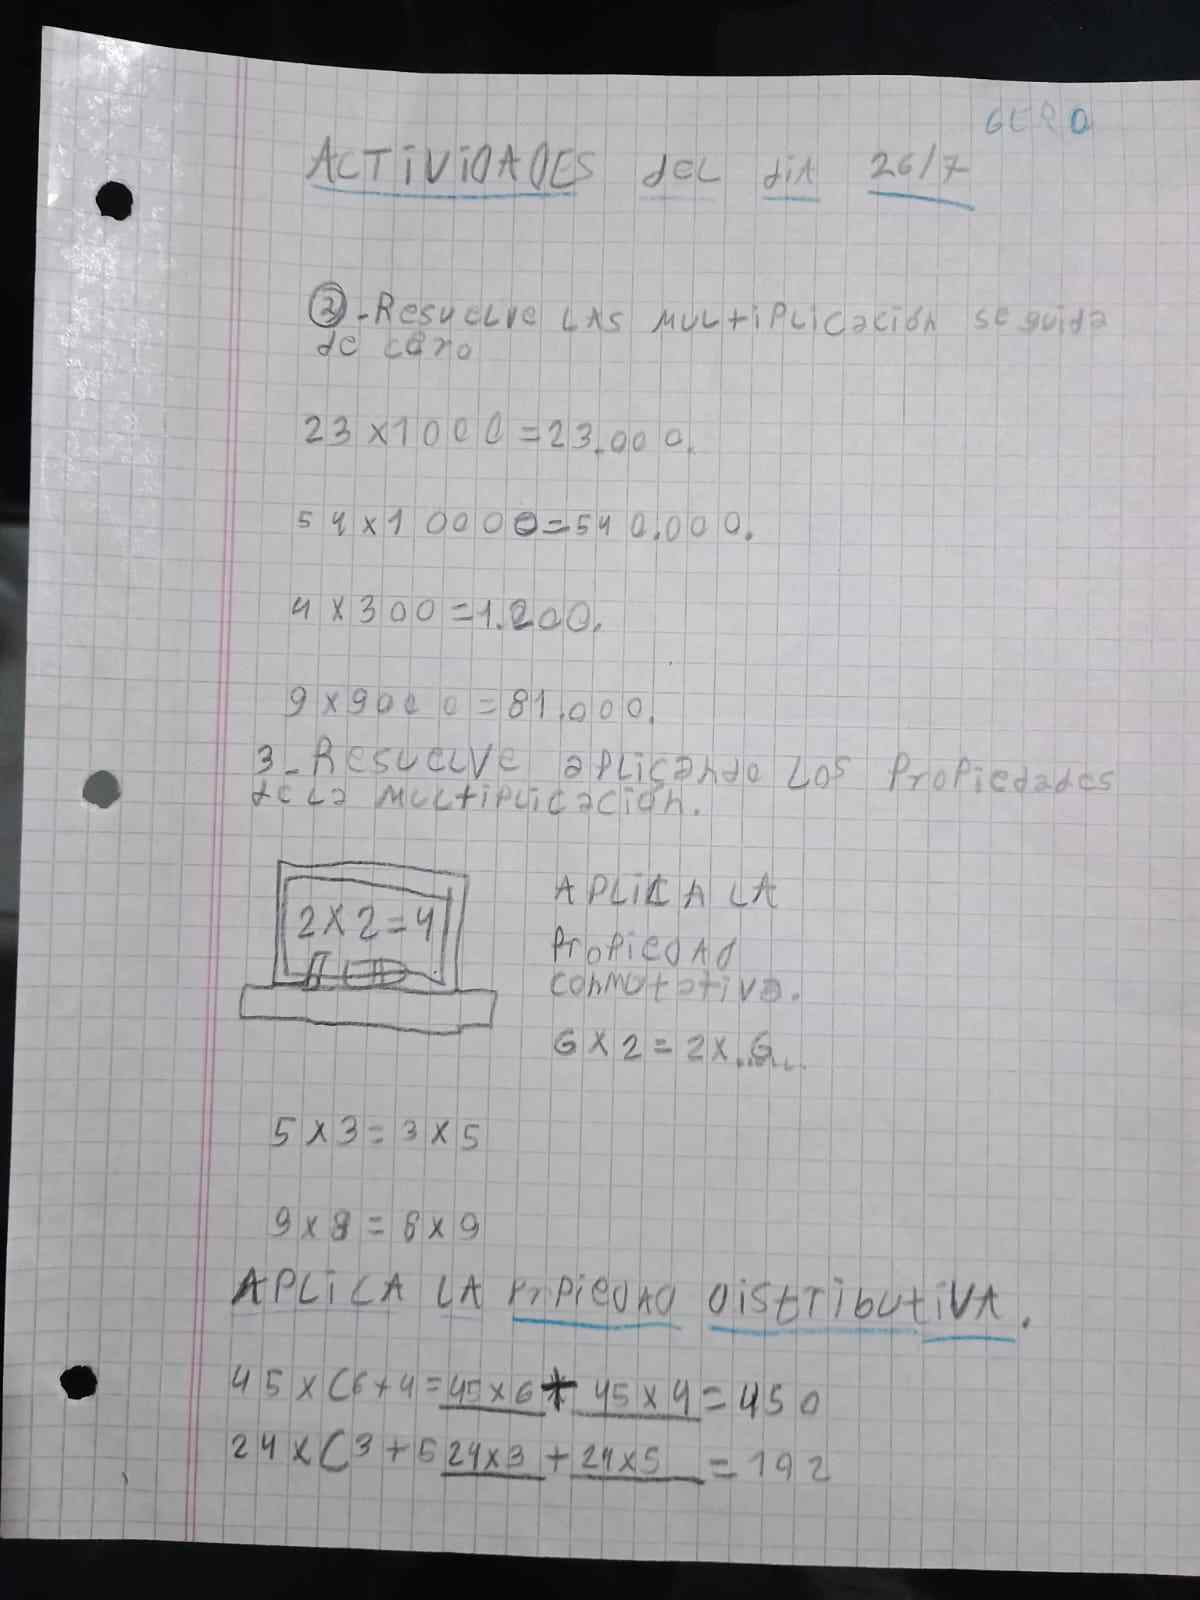 GERO
ACTIVIDADES del diA 26/7
2-Resuelve LAS multiplicación seguida
de cero
23x1000=23.000.
54x10000=540.000.
4x300=1.200.
9x9000=81.000.
3-Resuelve aplicando los propiedades
de la multiplicación.
2x2=4
APLICA LA
propiedad
conmutativa.
6x2=2x..6...
5x3=3x5
9x8=8x9
APLICA LA prpiedad distributiva.
45x(6+4=45x6+45x4=450
24x(3+5 24x3+24x5=192